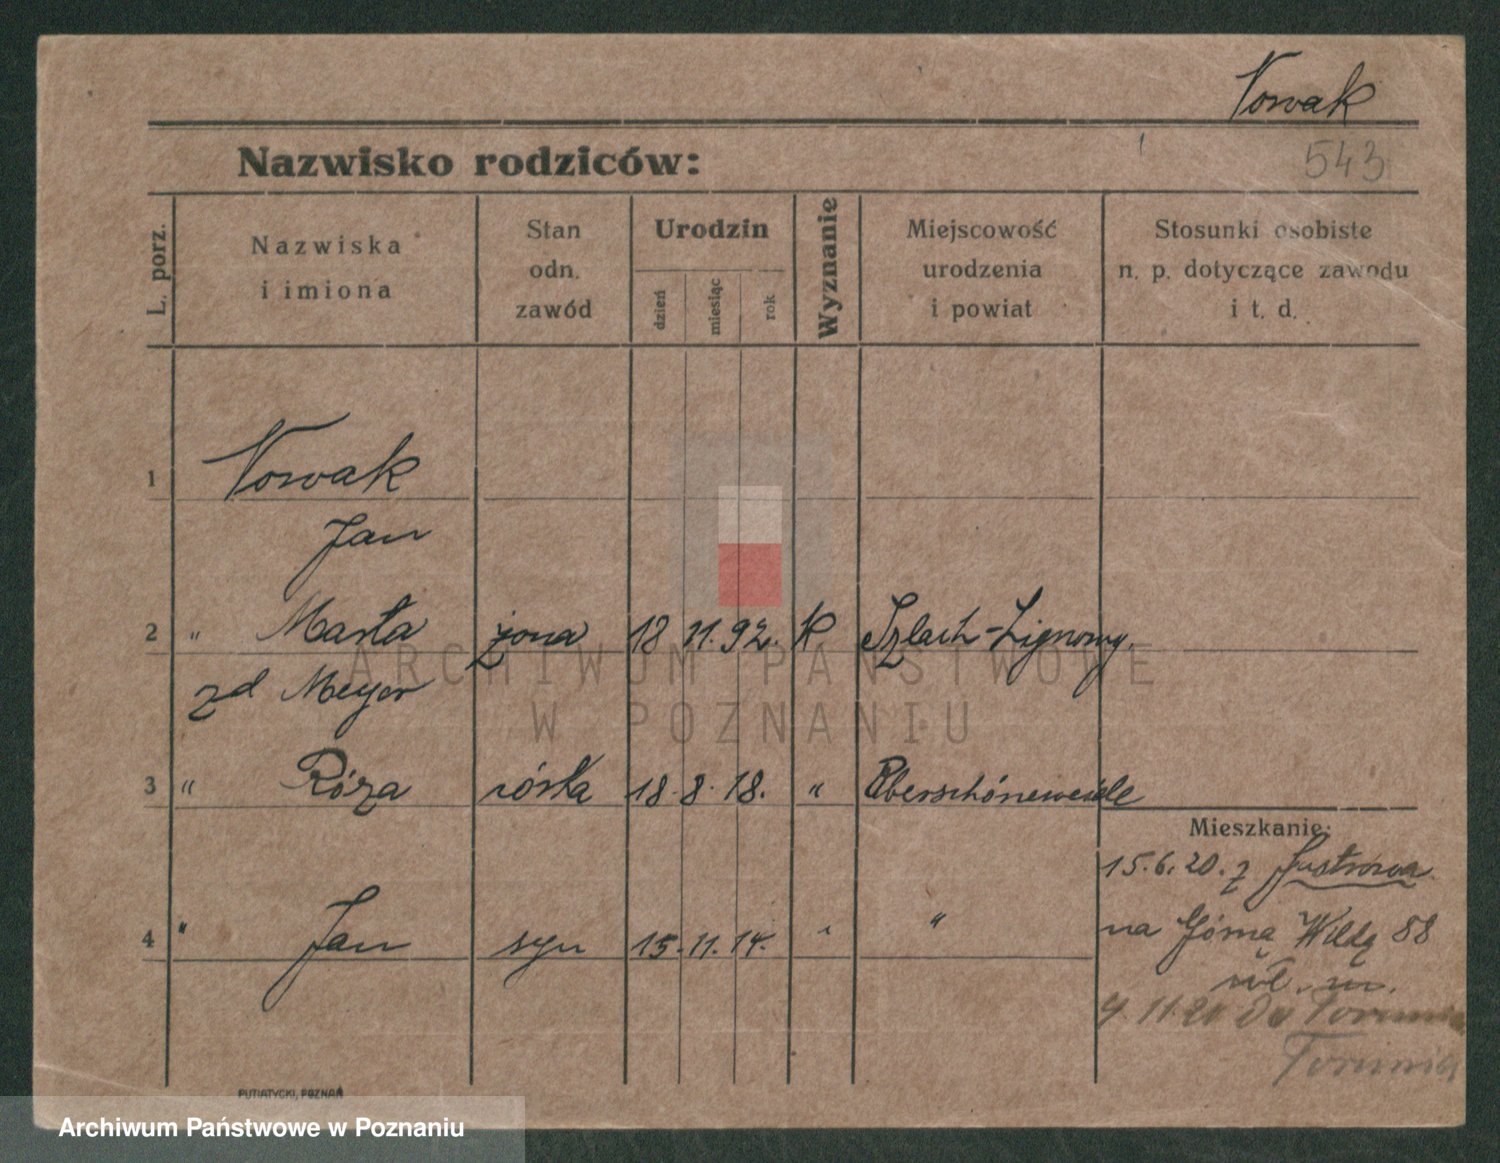 Nowak
Nazwisko rodziców:
543
L. porz.
Nazwiska
i imiona
Stan
odn.
zawód
Urodzin
dzień
miesiąc
rok
Wyznanie
Miejscowość
urodzenia
i powiat
Stosunki osobiste
n. p. dotyczące zawodu
i t. d.
1 Nowak
Jan
2 " Marta żona 18 11. 92. K Szlach-Lignowy.
zd Meyer
3 " Róza córka 18. 8. 18. " Oberschöneweide
Mieszkanie:
15.6.20. z
na Górna Wildą 88
4 " Jan syn 15. 11. 14. " "
wł. m.
9.11.20 Do Torunia
Torunia
PUTIATYCKI, POZNAŃ
ARCHIWUM PAŃSTWOWE
W POZNANIU
Archiwum Państwowe w Poznaniu